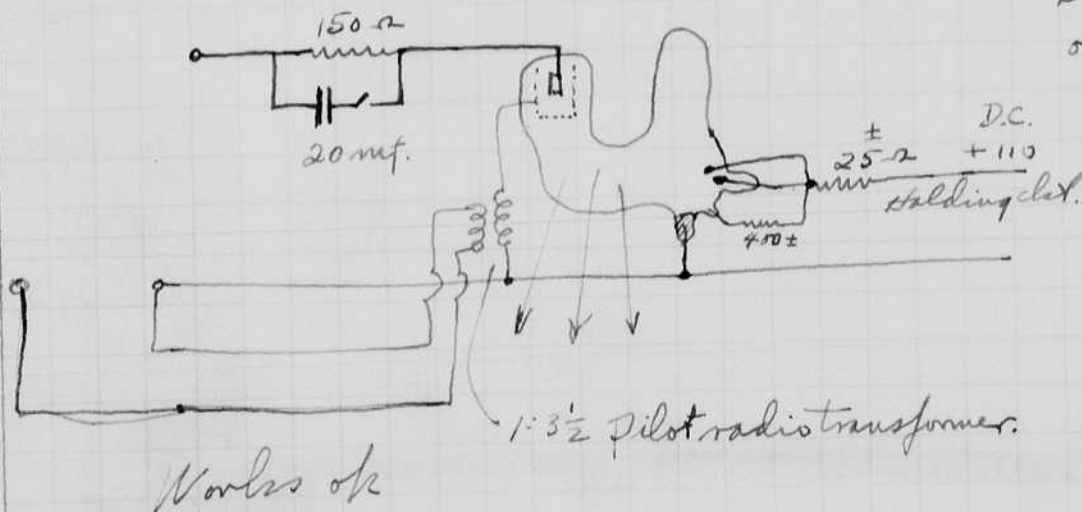 150 Ω
20 mf.
±
25 Ω
D.C.
+ 110
Holding ckt.
400 ±
1:3½ pilot radio transformer.
Works ok